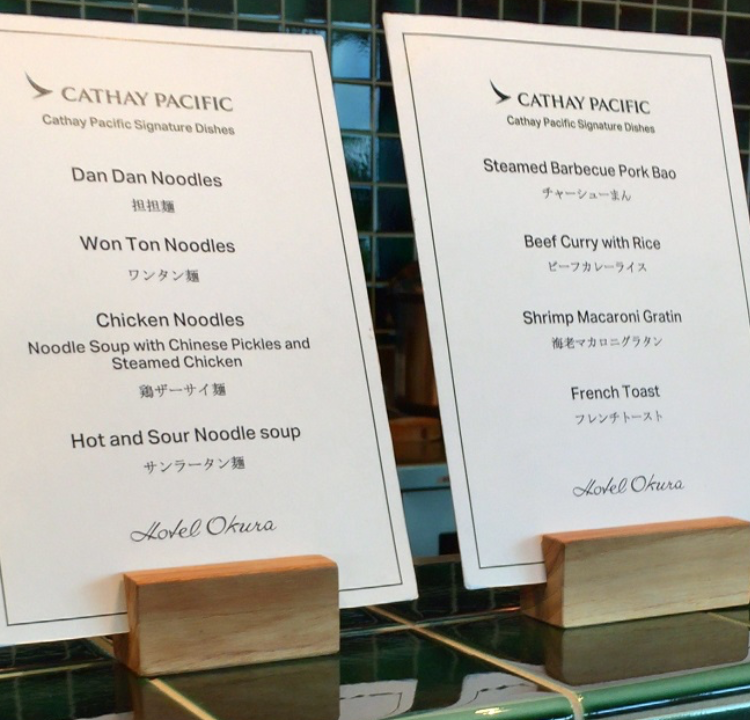 CATHAY PACIFIC
Cathay Pacific Signature Dishes
Dan Dan Noodles
担担麺
Won Ton Noodles
ワンタン麺
Chicken Noodles
Noodle Soup with Chinese Pickles and
Steamed Chicken
鶏ザーサイ麺
Hot and Sour Noodle soup
サンラータン麺
Hotel Okura
CATHAY PACIFIC
Cathay Pacific Signature Dishes
Steamed Barbecue Pork Bao
チャーシューまん
Beef Curry with Rice
ビーフカレーライス
Shrimp Macaroni Gratin
海老マカロニグラタン
French Toast
フレンチトースト
Hotel Okura